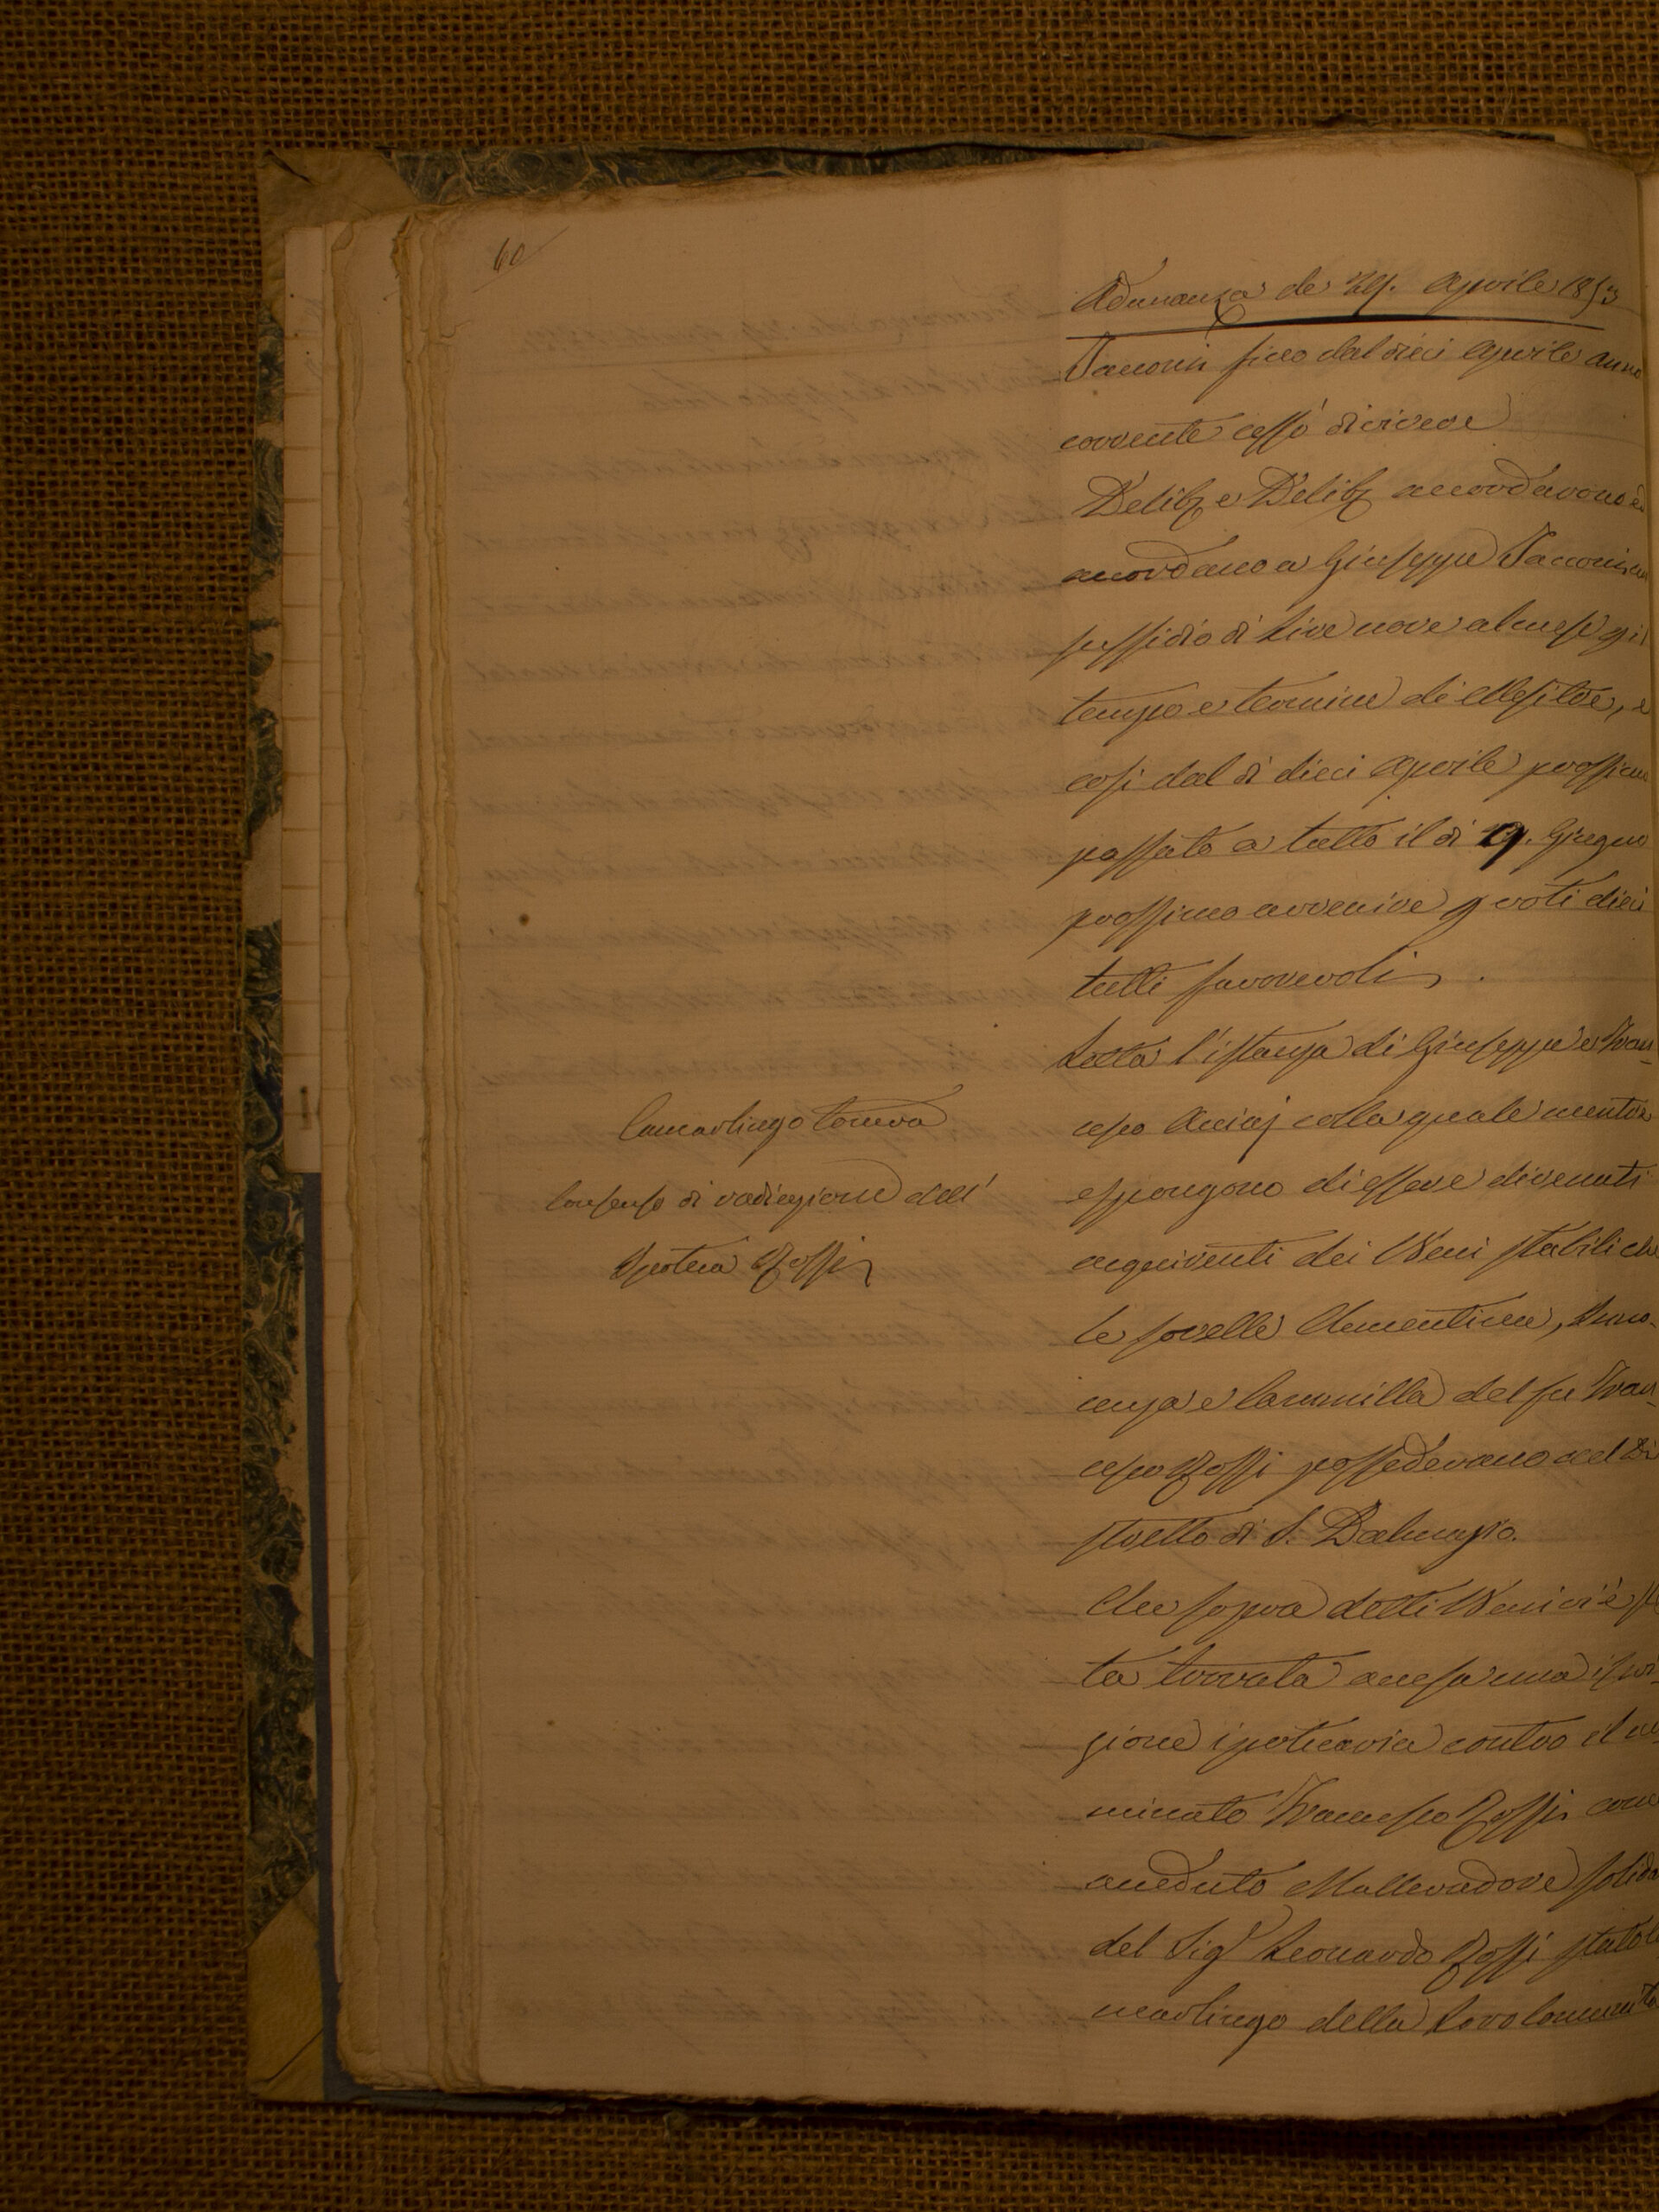 60
Adunanza de 29. Aprile 1853
Tacconi fino dal dieci Aprile anno
corrente cessò di vivere
Delib e Delib accordarono ed
accordano a Giuseppe Tacconi un
sussidio di Lire nove al mese pel
tempo e termine di Mesi tre, e
così dal dì dieci Aprile prossimo
passato a tutto il dì 9. Giugno
prossimo avvenire p voti dieci
tutti favorevoli.
Letta l'istanza di Giuseppe e Fran-
cesco colla quale mentre
espongono di essere divenuti
acquirenti dei Beni stabili che
le sorelle Clementina, Inno-
cenza e Cammilla del fu Fran-
cesco Rossi possedevano nel Di
stretto di S. Dalmazio.
Che sopra detti Beni vi è sta
ta trovata accesa una iscri-
zione ipotecaria contro il no-
minato Francesco Rossi come
anteduto Mallevadore solida
del Sig.r Leonardo Rossi stato Ca
marlingo della Loro Comunità
Camarlingo Comera
Consenso di radiazione dell'
Ipoteca Rossi